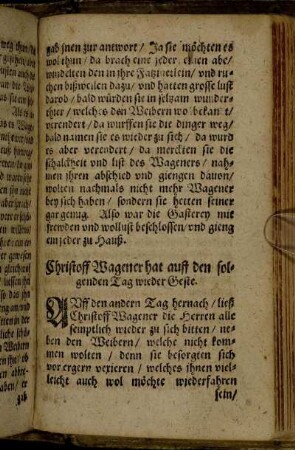 gab jnen zur antwort / Ja sie möchten es
wol thun / da brach eine jeder einen abe /
wundelten den in jhre Fatznetlein / vnd ru-
chen bißweilen dazu / vnd hatten grosse lust
darob / bald würden sie in selzam wunder-
thier / welches den Weibern wol bekant /
verendert / da wurffen sie die dinger weg /
bald namen sie es wieder zu sich / da wurd
es aber verendert / da merckten sie die
schalckheit vnd list des Wageners / nah-
men jhren abschied vnd giengen dauon /
wolten nachmals nicht mehr Wagener
bey sich haben / sondern sie hetten seiner
gar genug. Also war die Gasterey mit
frewden vnd wollust beschlossen / vnd gieng
ein jeder zu Hauß.
Christoff Wagener hat auff den fol-
genden Tag wieder Geste.
AUff den andern Tag hernach / ließ
Christoff Wagener die Herren alle
semptlich wieder zu sich bitten / ne-
ben den Weibern / welche nicht kom-
men wolten / denn sie besorgten sich
vor ergern vexieren / welches jhnen viel-
leicht auch wol möchte wiederfahren
sein /